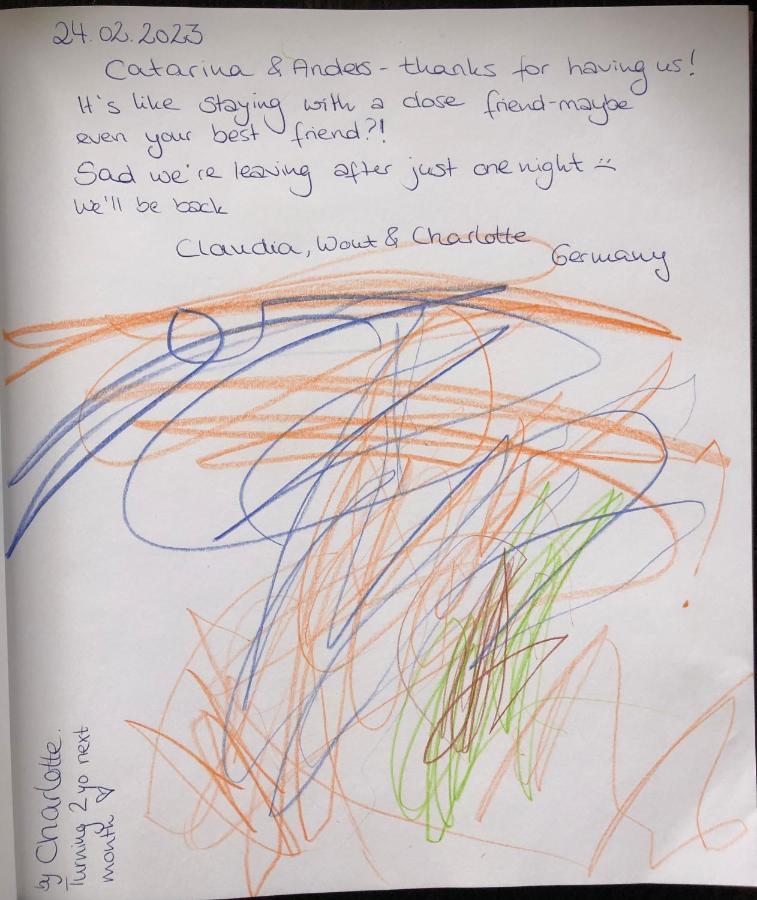 24.02.2023
Catarina & Anders - thanks for having us!
It's like staying with a close friend-maybe
even your best friend?!
Sad we're leaving after just one night :(
We'll be back
Claudia, Wout & Charlotte
Germany
by Charlotte.
Turning 2 yo next
month ♡